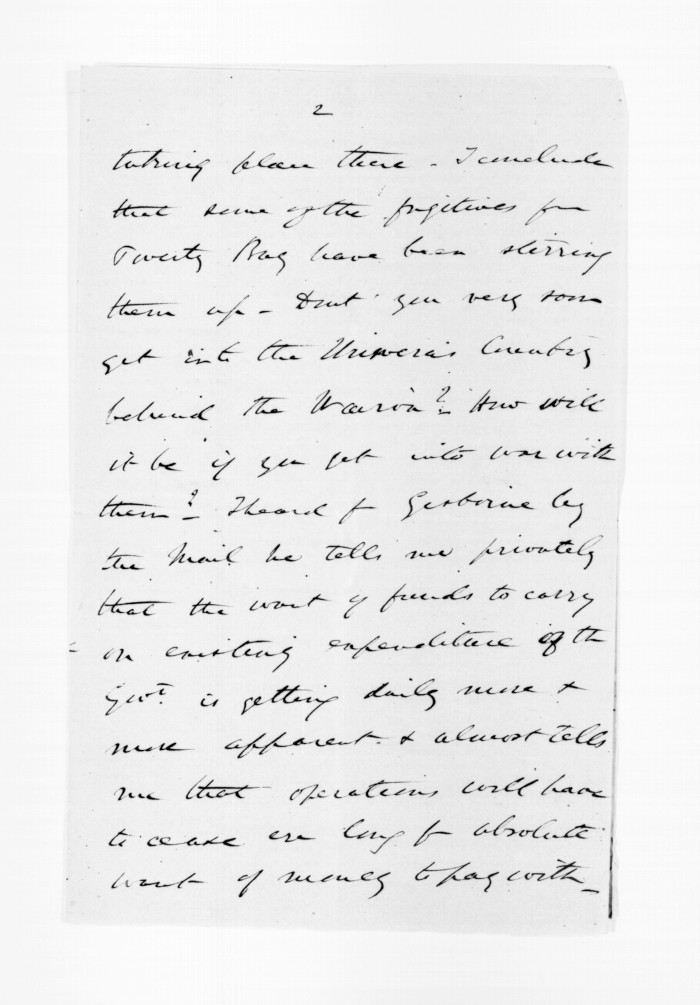 2
taking place there - I conclude
that some of the fugitives fm
Poverty Bay have been stirring
them up - Dont you very soon
get into the Uriwera's Country
behind the Wairoa? - How will
it be if you get into war with
them? - I heard f Gisborne by
the Mail he tells me privately
that the want of funds to carry
on existing expenditure of th
Govt. is getting daily more &
more apparent & almost tells
me that operations will have
to cease ere long f absolute
want of money to pay with -